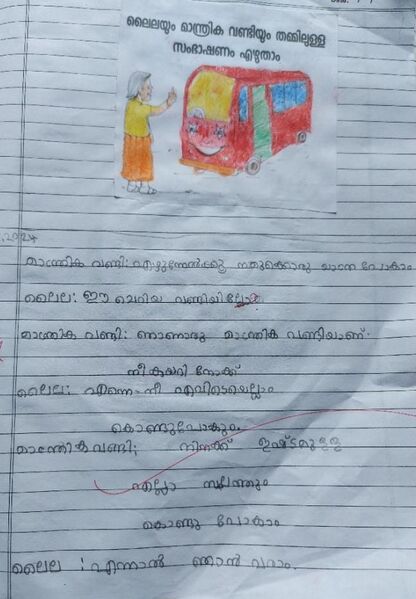 ലൈലയും മാന്ത്രിക വണ്ടിയും തമ്മിലുള്ള
സംഭാഷണം എഴുതാം
2024
മാന്ത്രിക വണ്ടി: എഴുന്നേൽക്കൂ നമുക്കൊരു യാത്ര പോകാം
ലൈല: ഈ ചെറിയ വണ്ടിയി
മാന്ത്രിക വണ്ടി: ഞാനൊരു മാന്ത്രിക വണ്ടിയാണ്.
നീ കയറി നോക്ക്
ലൈല: എന്നെ നീ എവിടെയെല്ലാം
കൊണ്ടുപോകും.
മാന്ത്രികവണ്ടി: നിനക്ക് ഇഷ്ടമുള്ള
എല്ലാ സ്ഥലത്തും
കൊണ്ടു പോകാം
ലൈല : എന്നാൽ ഞാൻ വരാം.